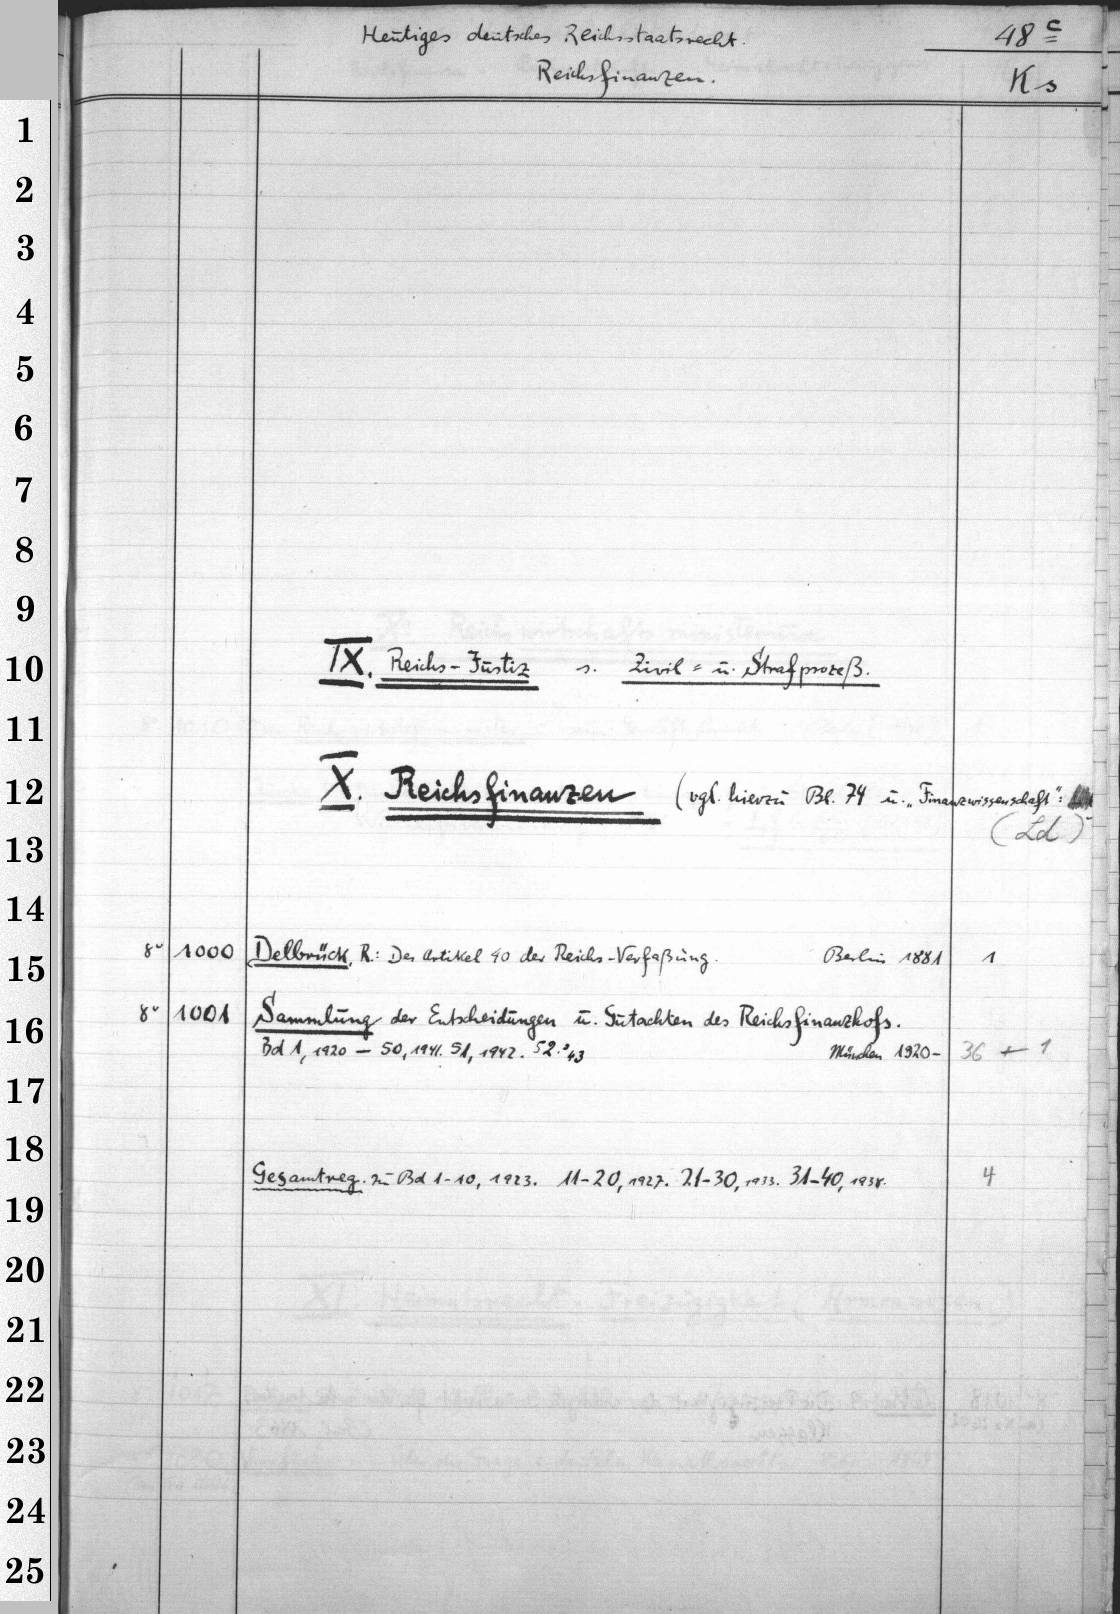 Heutiges deutsches Reichsstaatsrecht. 48 c
Reichsfinanzen. Ks
1
2
3
4
5
6
7
8
9
10 IX. Reichs-Justiz s. Zivil- u. Strafprozeß.
11
12 X. Reichsfinanzen (vgl. hierzu Bl. 74 u. „Finanzwissenschaft":
13 (Ld)
14
15 8° 1000 Delbrück, R.: Der Artikel 40 der Reichs-Verfaßung. Berlin 1881 1
16 8° 1001 Sammlung der Entscheidungen u. Gutachten des Reichsfinanzhofs.
Bd 1, 1920 – 50, 1941. 51, 1942. 52. 43 München 1920- 36 + 1
17
18
Gesamtreg. zu Bd 1-10, 1923. 11-20, 1927. 21-30, 1933. 31-40, 1938. 4
19
20
21
22
23
24
25